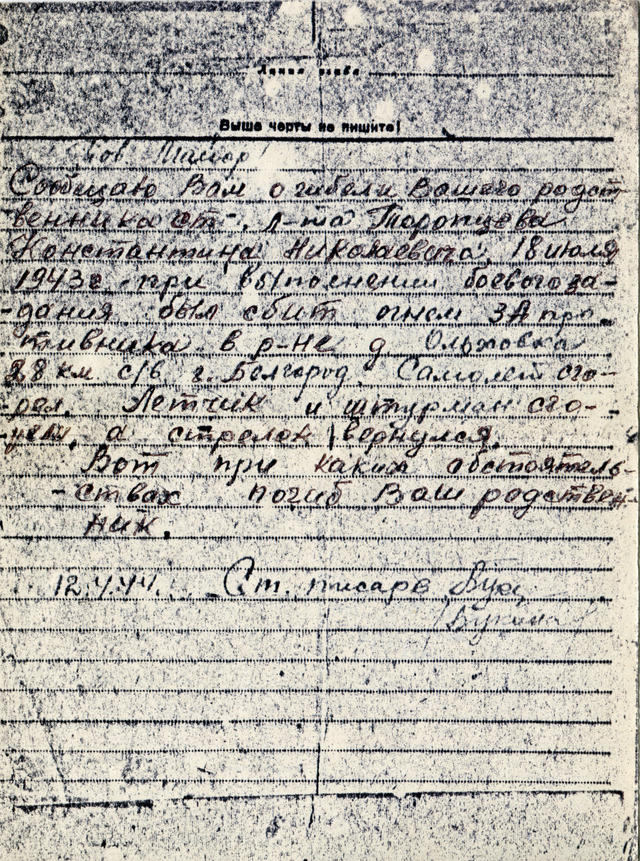 Линия сгиба
Выше черты не пишите!
Тов. Майор!
Сообщаю Вам о гибели Вашего родст
венника ст. л-та Торопцева
Константина Николаевича, 18 июля
1943г при выполнении боевого за-
-дания был сбит огнем ЗА про
тивника в р-не д. Ольховка
28 км с/в г. Белгород. Самолет сго-
-рел. Летчик и штурман сго-
-рели, а стрелок вернулся.
Вот при каких обстоятель-
-ствах погиб Ваш родствен-
ник.
12.4.44. Ст. писарь